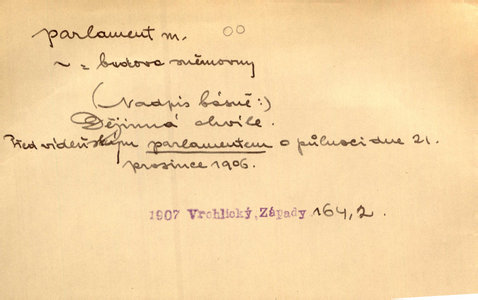 parlament m. 00
~ = budova sněmovny
(Nadpis básně:)
Dějinná chvíle.
Před vídeňským parlamentem o půlnoci dne 21.
prosince 1906.
1907 Vrchlický, Západy 164,2.